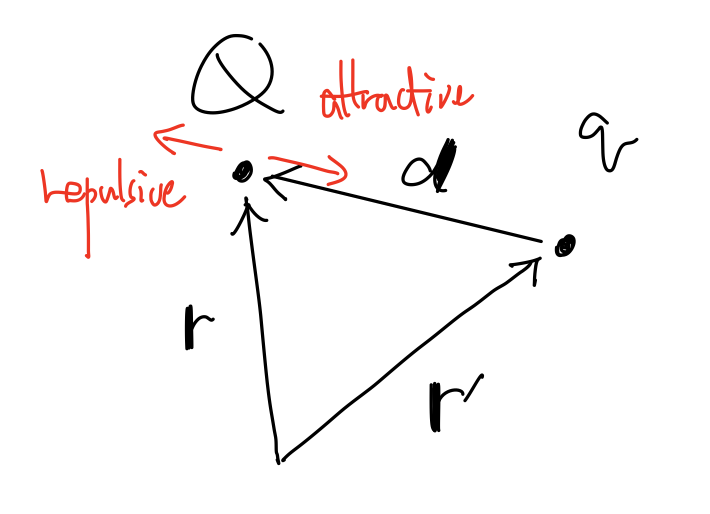 Q
attractive
q
d
repulsive
r
r′